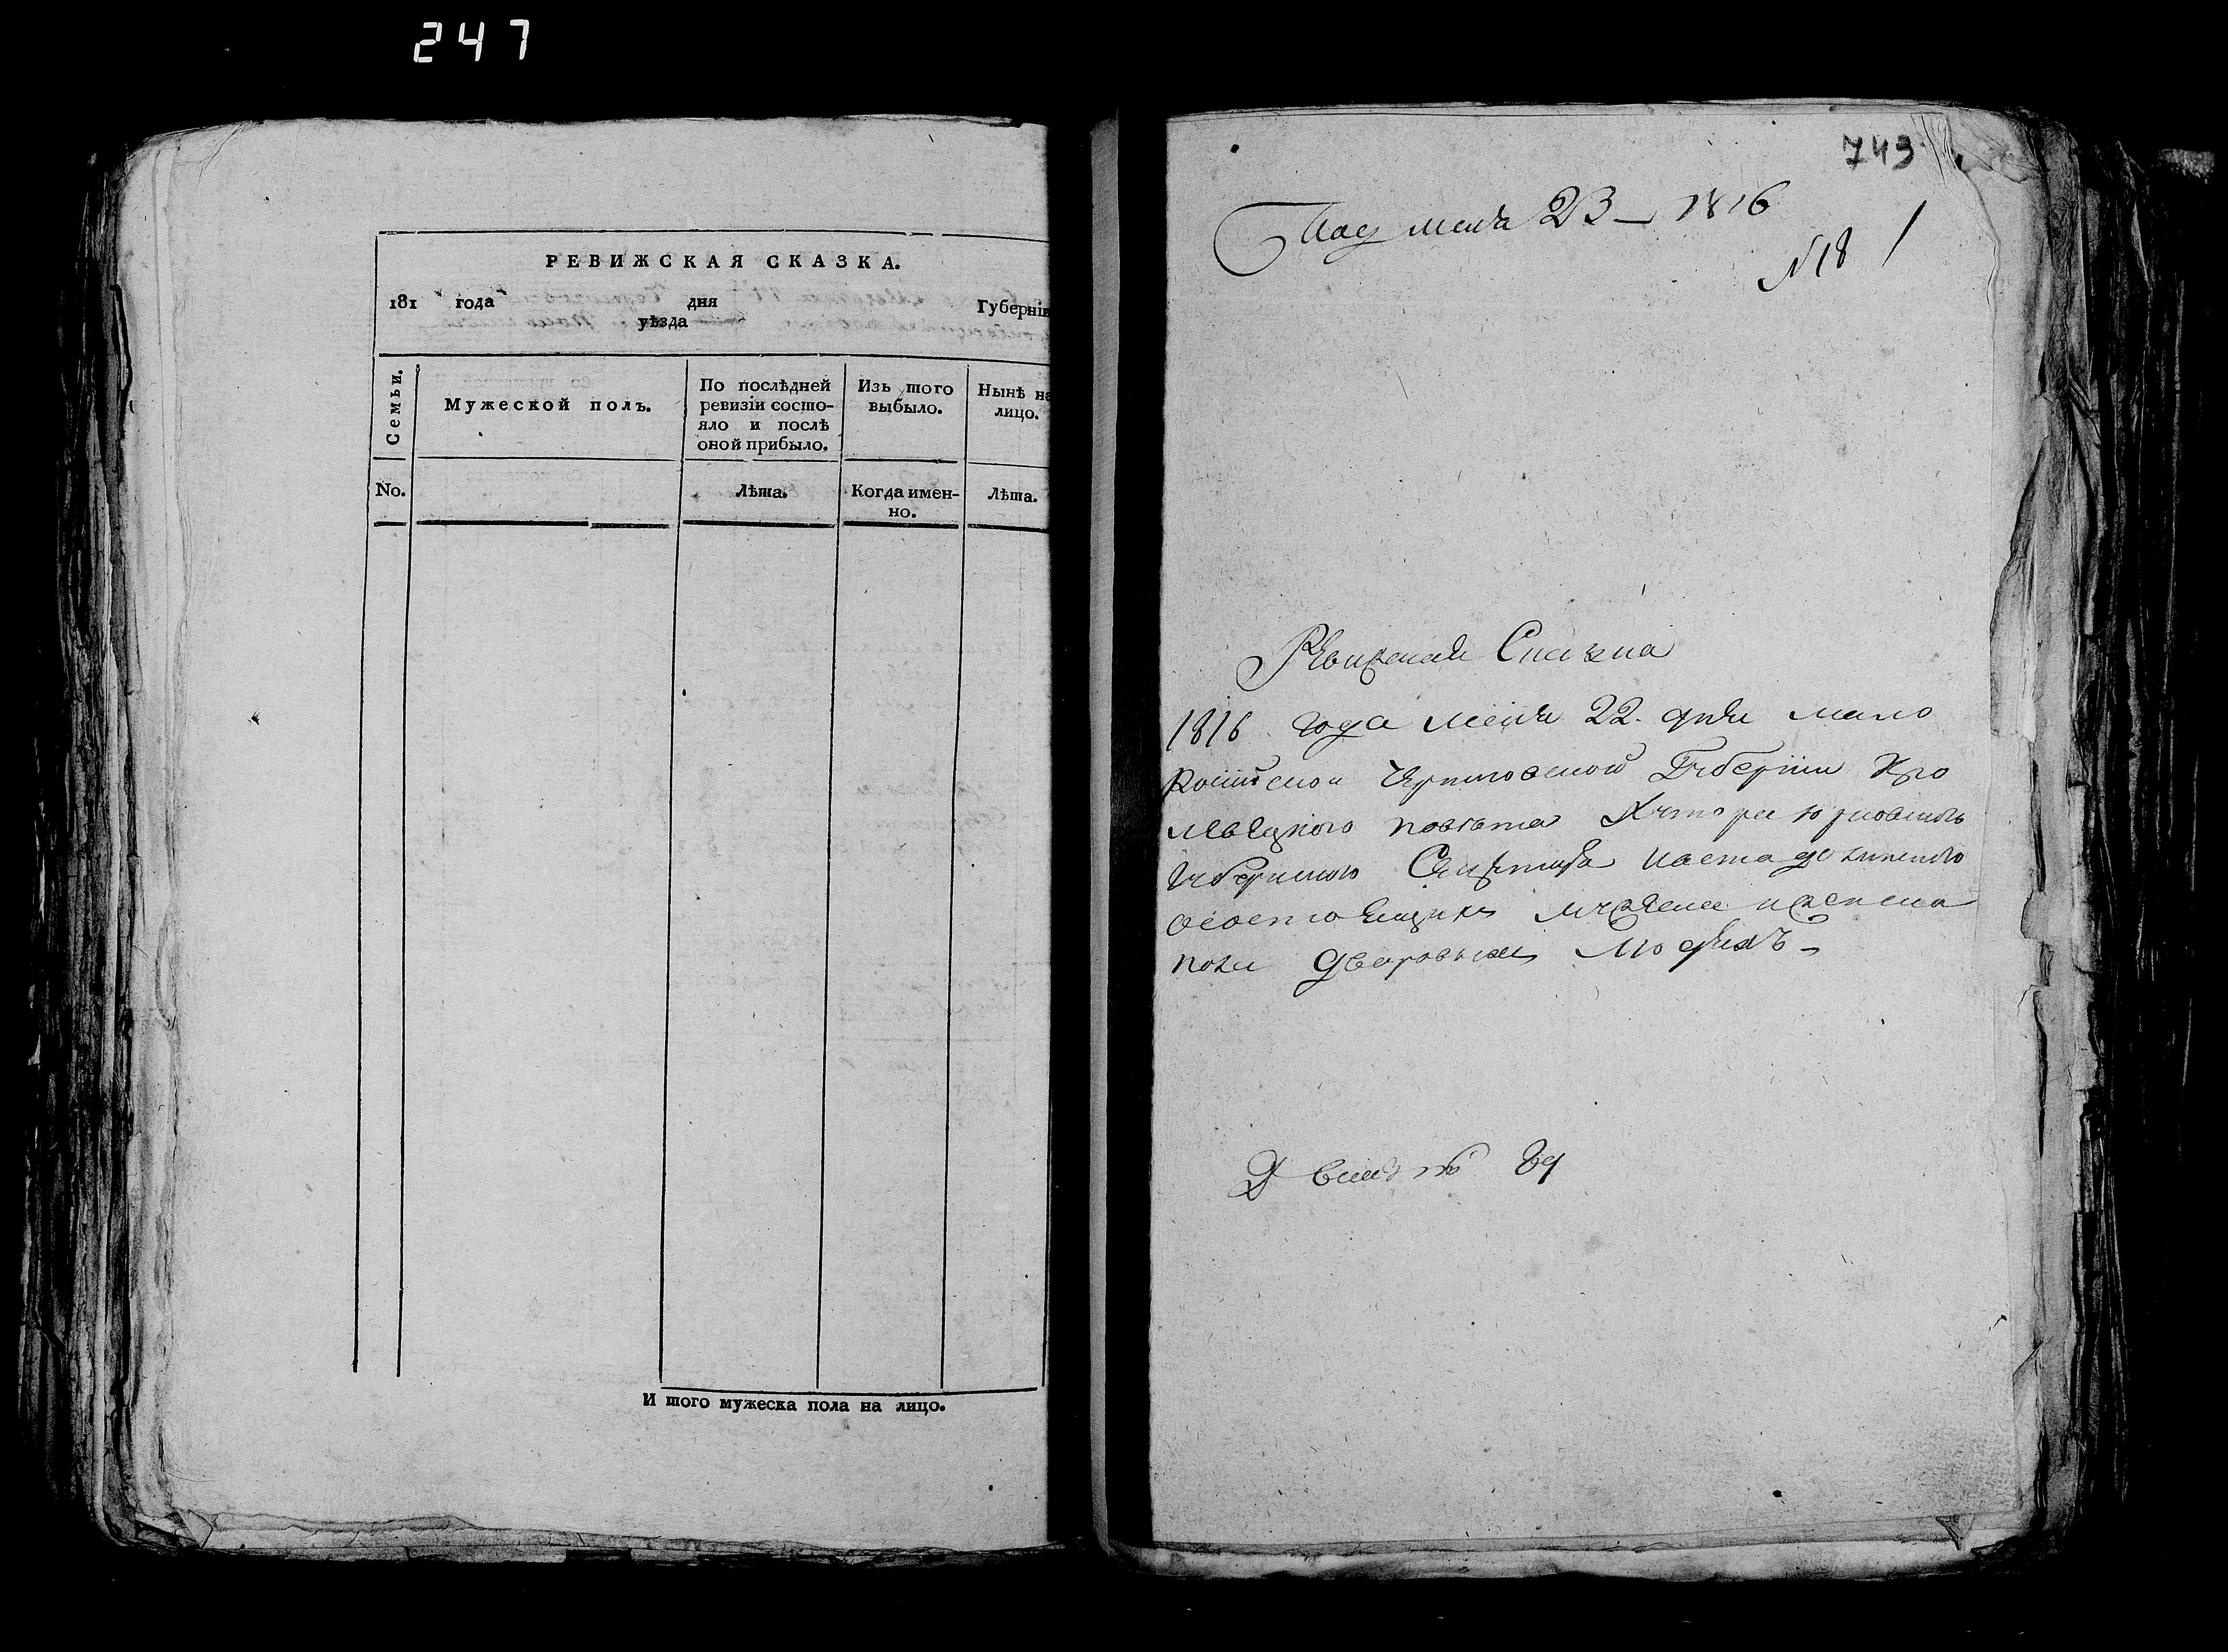 247
РЕВИЖСКАЯ СКАЗКА.
181 года дня Губерніи
уѣзда
Семьи.
Мужеской полъ.
По послѣдней
ревизіи состо-
яло и послѣ
оной прибыло.
Изъ того
выбыло.
Нынѣ на
лицо.
No.
Лѣта.
Когда имен-
но.
Лѣта.
И того мужеска пола на лицо.
743
Под 23 1816
№18
Ревижская Сказка
1816 года 22. дня мало
Россійской Черниговской Губерніи Кро
левецкого повѣта Хутора
губернского
о состоящихъ мужеска и женска
пола дворовыхъ Людяхъ
89